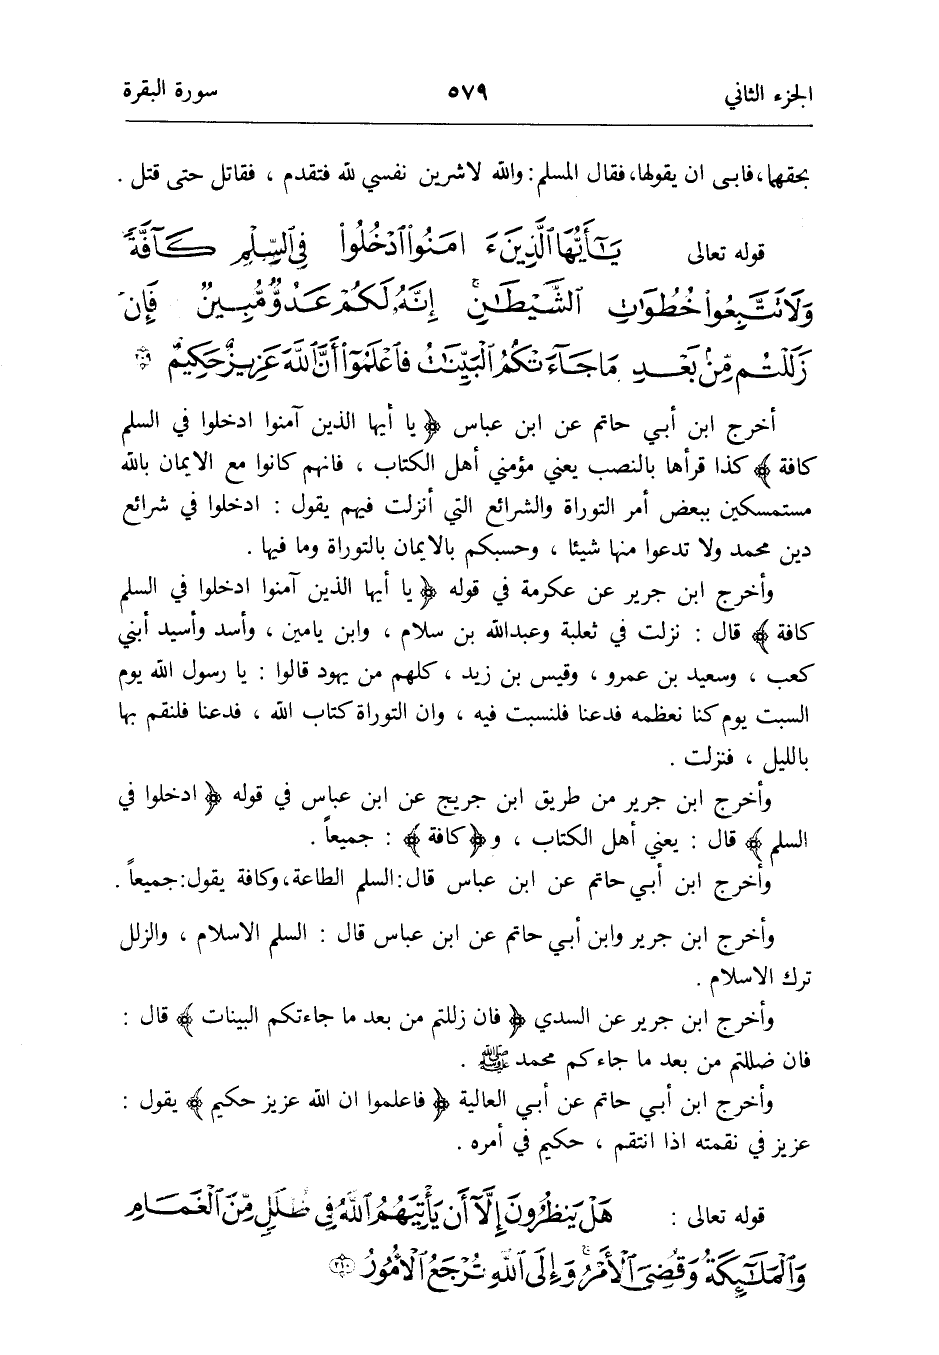 الجزء الثاني ٥٧٩ سورة البقرة
بحقها، فابى ان يقولها، فقال المسلم: والله لاشرين نفسي لله فتقدم ، فقاتل حتى قتل .
قوله تعالى يَٰٓأَيُّهَا ٱلَّذِينَ ءَامَنُوا۟ ٱدْخُلُوا۟ فِى ٱلسِّلْمِ كَآفَّةً
وَلَا تَتَّبِعُوا۟ خُطُوَٰتِ ٱلشَّيْطَٰنِ ۚ إِنَّهُۥ لَكُمْ عَدُوٌّ مُّبِينٌ فَإِن
زَلَلْتُم مِّنۢ بَعْدِ مَا جَآءَتْكُمُ ٱلْبَيِّنَٰتُ فَٱعْلَمُوٓا۟ أَنَّ ٱللَّهَ عَزِيزٌ حَكِيمٌ ٢٠٩
أخرج ابن أبي حاتم عن ابن عباس ﴿ يا أيها الذين آمنوا ادخلوا في السلم
كافة ﴾ كذا قرأها بالنصب يعني مؤمني أهل الكتاب ، فانهم كانوا مع الايمان بالله
مستمسكين ببعض أمر التوراة والشرائع التي أنزلت فيهم يقول : ادخلوا في شرائع
دين محمد ولا تدعوا منها شيئا ، وحسبكم بالايمان بالتوراة وما فيها .
وأخرج ابن جرير عن عكرمة في قوله ﴿ يا أيها الذين آمنوا ادخلوا في السلم
كافة ﴾ قال : نزلت في ثعلبة وعبدالله بن سلام ، وابن يامين ، وأسد وأسيد أبني
كعب ، وسعيد بن عمرو ، وقيس بن زيد ، كلهم من يهود قالوا : يا رسول الله يوم
السبت يوم كنا نعظمه فدعنا فلنسبت فيه ، وان التوراة كتاب الله ، فدعنا فلنقم بها
بالليل ، فنزلت .
وأخرج ابن جرير من طريق ابن جريج عن ابن عباس في قوله ﴿ ادخلوا في
السلم ﴾ قال : يعني أهل الكتاب ، و﴿ كافة ﴾ : جميعاً .
وأخرج ابن أبي حاتم عن ابن عباس قال: السلم الطاعة، وكافة يقول: جميعاً .
وأخرج ابن جرير وابن أبي حاتم عن ابن عباس قال : السلم الاسلام ، والزلل
ترك الاسلام .
وأخرج ابن جرير عن السدي ﴿ فان زللتم من بعد ما جاءتكم البينات ﴾ قال :
فان ضللتم من بعد ما جاءكم محمد ﷺ .
وأخرج ابن أبي حاتم عن أبي العالية ﴿ فاعلموا ان الله عزيز حكيم ﴾ يقول :
عزيز في نقمته اذا انتقم ، حكيم في أمره .
قوله تعالى : هَلْ يَنظُرُونَ إِلَّآ أَن يَأْتِيَهُمُ ٱللَّهُ فِى ظُلَلٍ مِّنَ ٱلْغَمَامِ
وَٱلْمَلَٰٓئِكَةُ وَقُضِىَ ٱلْأَمْرُ ۚ وَإِلَى ٱللَّهِ تُرْجَعُ ٱلْأُمُورُ ٢١٠